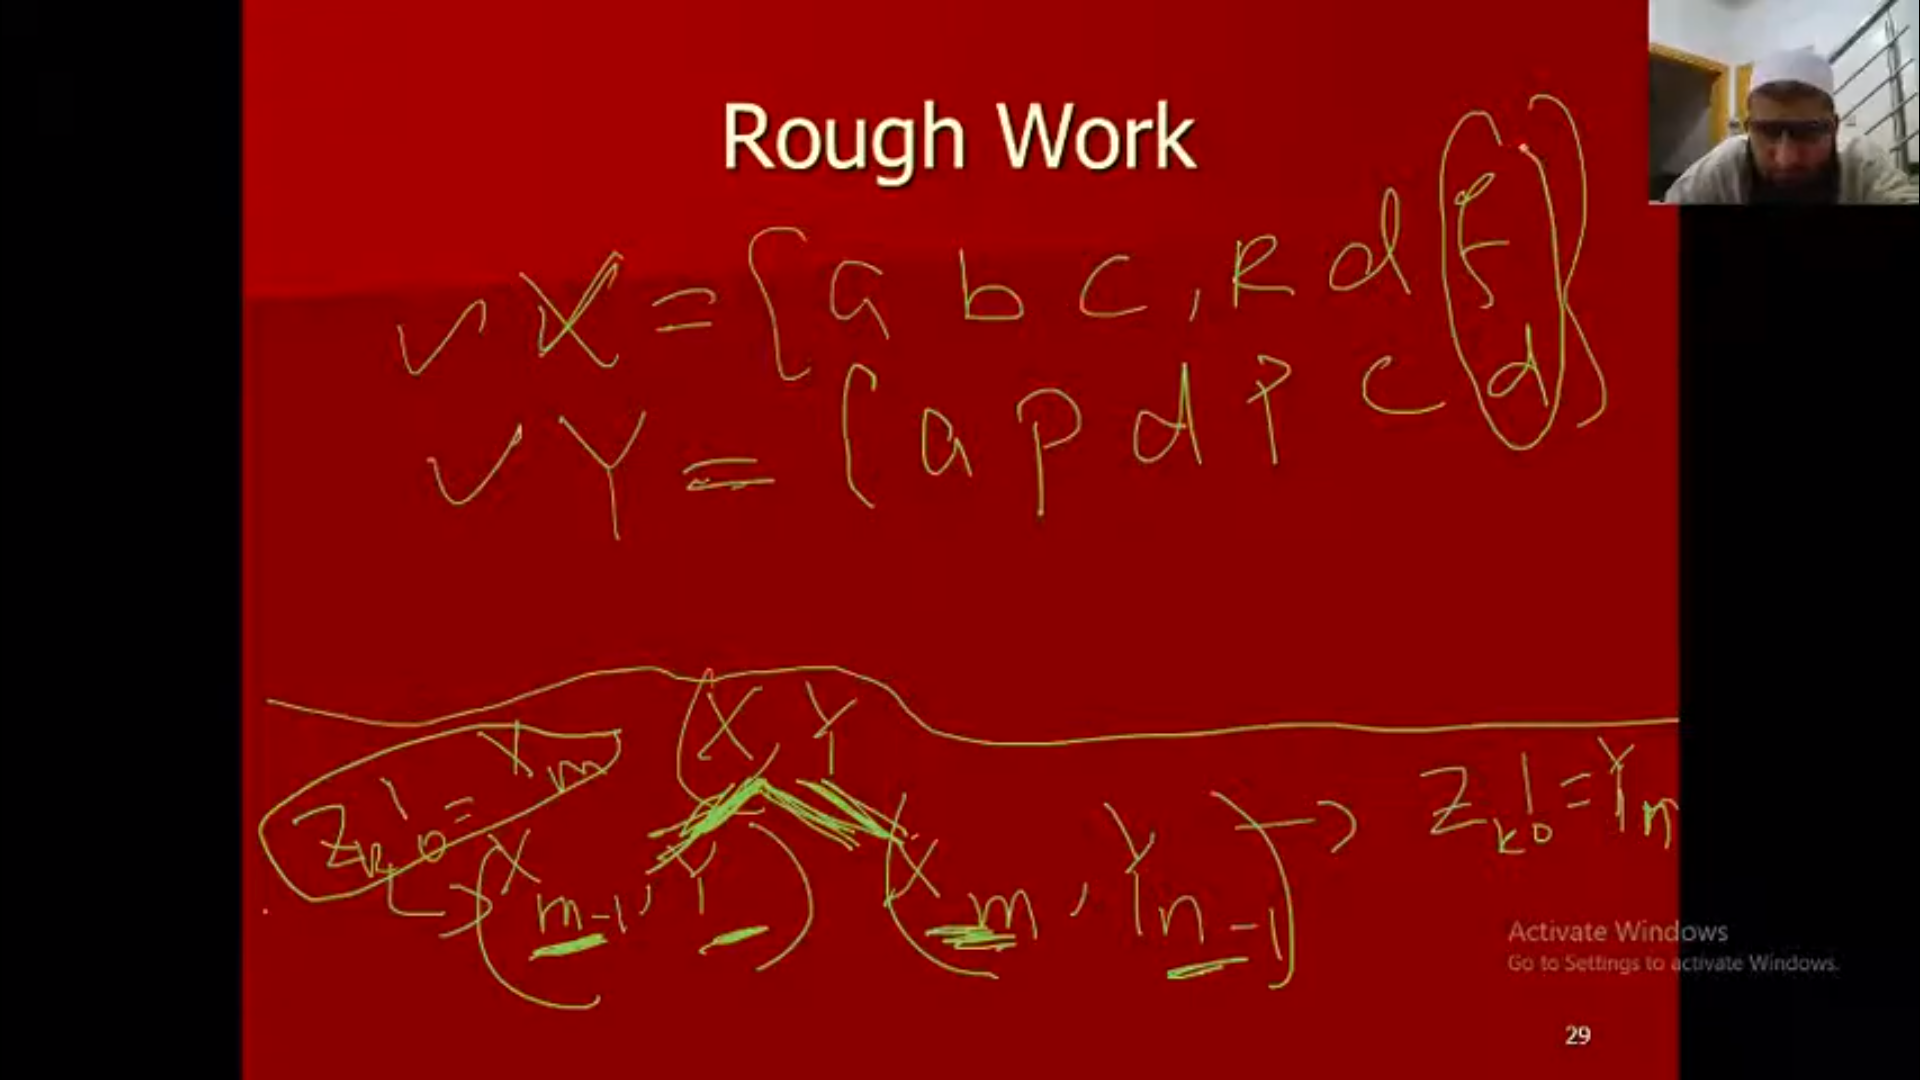 Rough Work
X = { a b c , R d f }
Y = { a p d ? c d }
( X Y
Zk != Xm
Zk != Yn
( Xm-1 , Y )
( Xm , Yn-1 )
Activate Windows
Go to Settings to activate Windows.
29